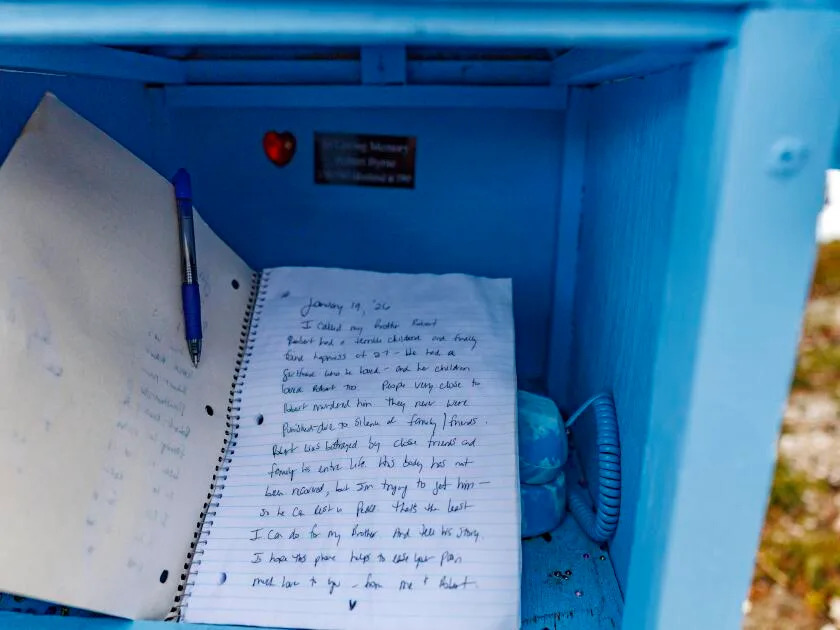 In Loving Memory
Robert Byrne
January 19, '26
I called my brother Robert
Robert had a terrible childhood and finally
found happiness at 27 - He had a
girlfriend who he loved - and her children
loved Robert too. People very close to
Robert murdered him. They never were
punished due to silence of family/friends.
Robert was betrayed by close friends and
family his entire life. His body has not
been recovered, but I'm trying to get him -
so he can rest in peace. That's the least
I can do for my Brother. And tell his story.
I hope this phone helps to ease your pain
much love to you - from me + Robert.